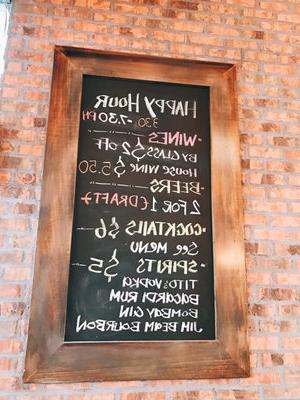 HAPPY HOUR
3:30 -7:30 PM
-WINES
BY GLASS $2 OFF
HOUSE WINE $5.50
-BEERS
2 FOR 1 (DRAFT)
-COCKTAILS $6
SEE MENU
-SPIRITS $5
TITO'S VODKA
BACARDI RUM
BOMBAY GIN
JIM BEAM BOURBON